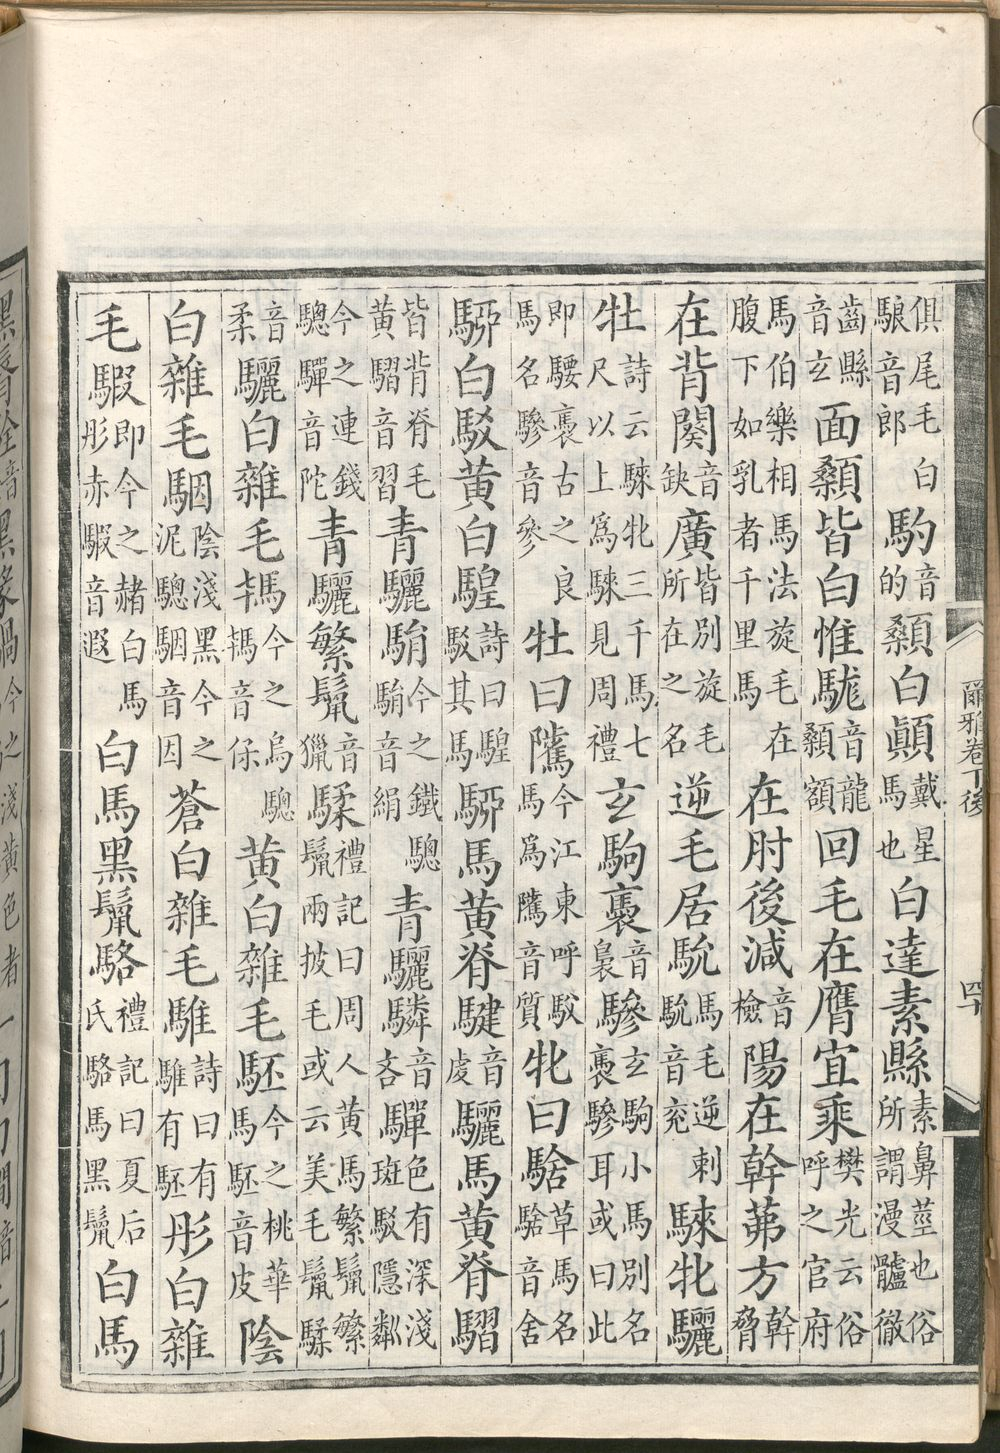 俱尾毛白駺音郎馰音的顙白顛戴星馬也白達素縣素鼻莖也俗所謂漫髗徹
齒縣音玄面顙皆白惟駹音龍顙額回毛在膺宜乘樊光云俗呼之官府
馬伯樂相馬法旋毛在腹下如乳者千里馬在肘後減音檢陽在幹茀方幹脅
在背闋音缺廣皆別旋毛所在之名逆毛居馻馬毛逆刺馻音兖騋牝驪
牡詩云騋牝三千馬七尺以上爲騋見周禮玄駒褭音裊驂玄駒小馬別名褭驂耳或曰此
即騕褭古之良馬名驂音參牡曰騭今江東呼馭馬爲騭音質牝曰騇草馬名騇音舍
駵白駁黃白騜詩曰騜駁其馬駵馬黃脊騝音虔驪馬黃脊騽
皆背脊毛黃騽音習青驪駽今之鐵驄駽音絹青驪驎音吝驒色有深淺斑駁隱粼
今之連錢驄驒音陀青驪繁鬣音獵騥禮記曰周人黃馬繁鬣繁鬣兩披毛或云美毛鬣騥
音柔驪白雜毛駂今之烏驄駂音保黃白雜毛駓今之桃華馬駓音皮陰
白雜毛駰陰淺黑今之泥驄駰音因蒼白雜毛騅詩曰有騅有駓彤白雜
毛騢即今之赭白馬彤赤騢音遐白馬黑鬣駱禮記曰夏后氏駱馬黑鬣白馬
爾雅卷下後 四十